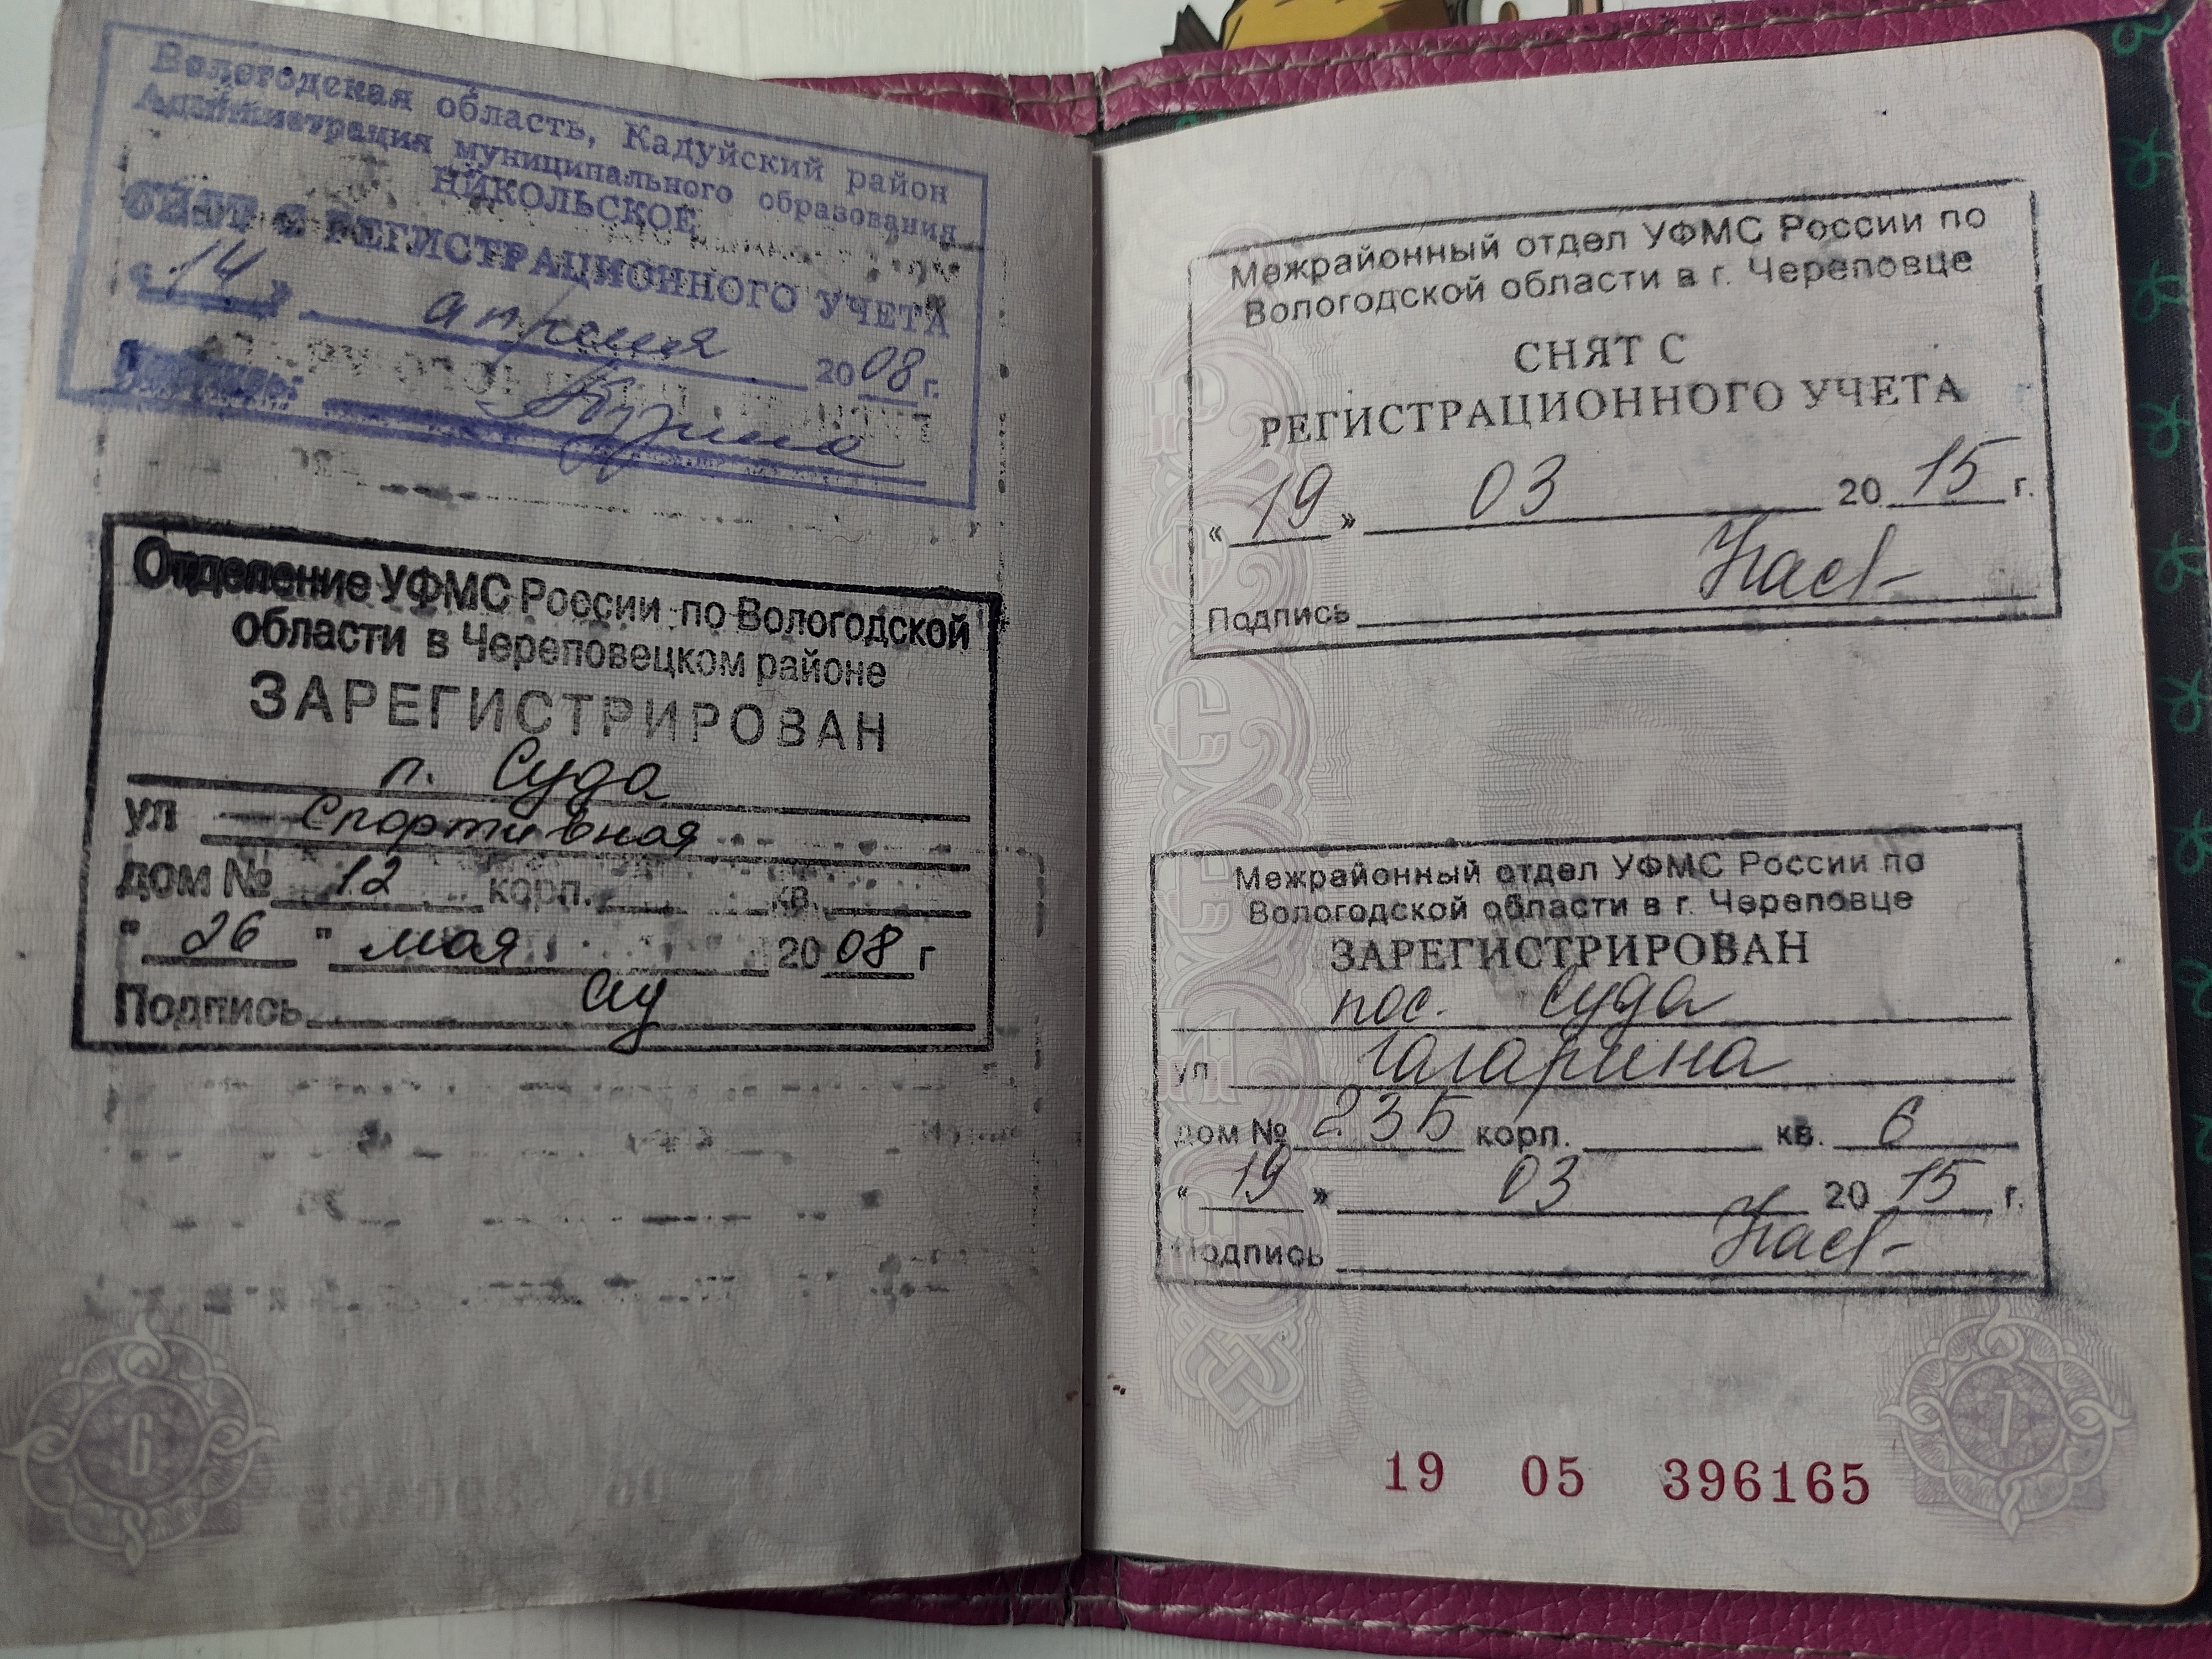 Вологодская область, Кадуйский район
Администрация муниципального образования
НИКОЛЬСКОЕ
СНЯТ С РЕГИСТРАЦИОННОГО УЧЕТА
« 14 » апреля 2008 г.
Отделение УФМС России по Вологодской
области в Череповецком районе
ЗАРЕГИСТРИРОВАН
п. Суда
ул Спортивная
дом № 12 корп. кв.
" 26 " мая 2008 г
Подпись
6
Межрайонный отдел УФМС России по
Вологодской области в г. Череповце
СНЯТ С
РЕГИСТРАЦИОННОГО УЧЕТА
« 19 » 03 2015 г.
Подпись
Межрайонный отдел УФМС России по
Вологодской области в г. Череповце
ЗАРЕГИСТРИРОВАН
пос. Суда
ул. Гагарина
дом № 235 корп. кв. 6
« 19 » 03 2015 г.
Подпись
19 05 396165
7